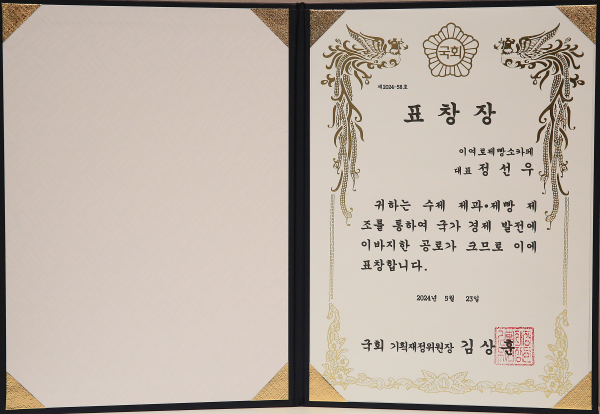 국회
제2024-58호
표창장
이여로제빵소카페
대표 정선우
귀하는 수제 제과•제빵 제
조를 통하여 국가 경제 발전에
이바지한 공로가 크므로 이에
표창합니다.
2024년 5월 23일
국회 기획재정위원장 김상훈